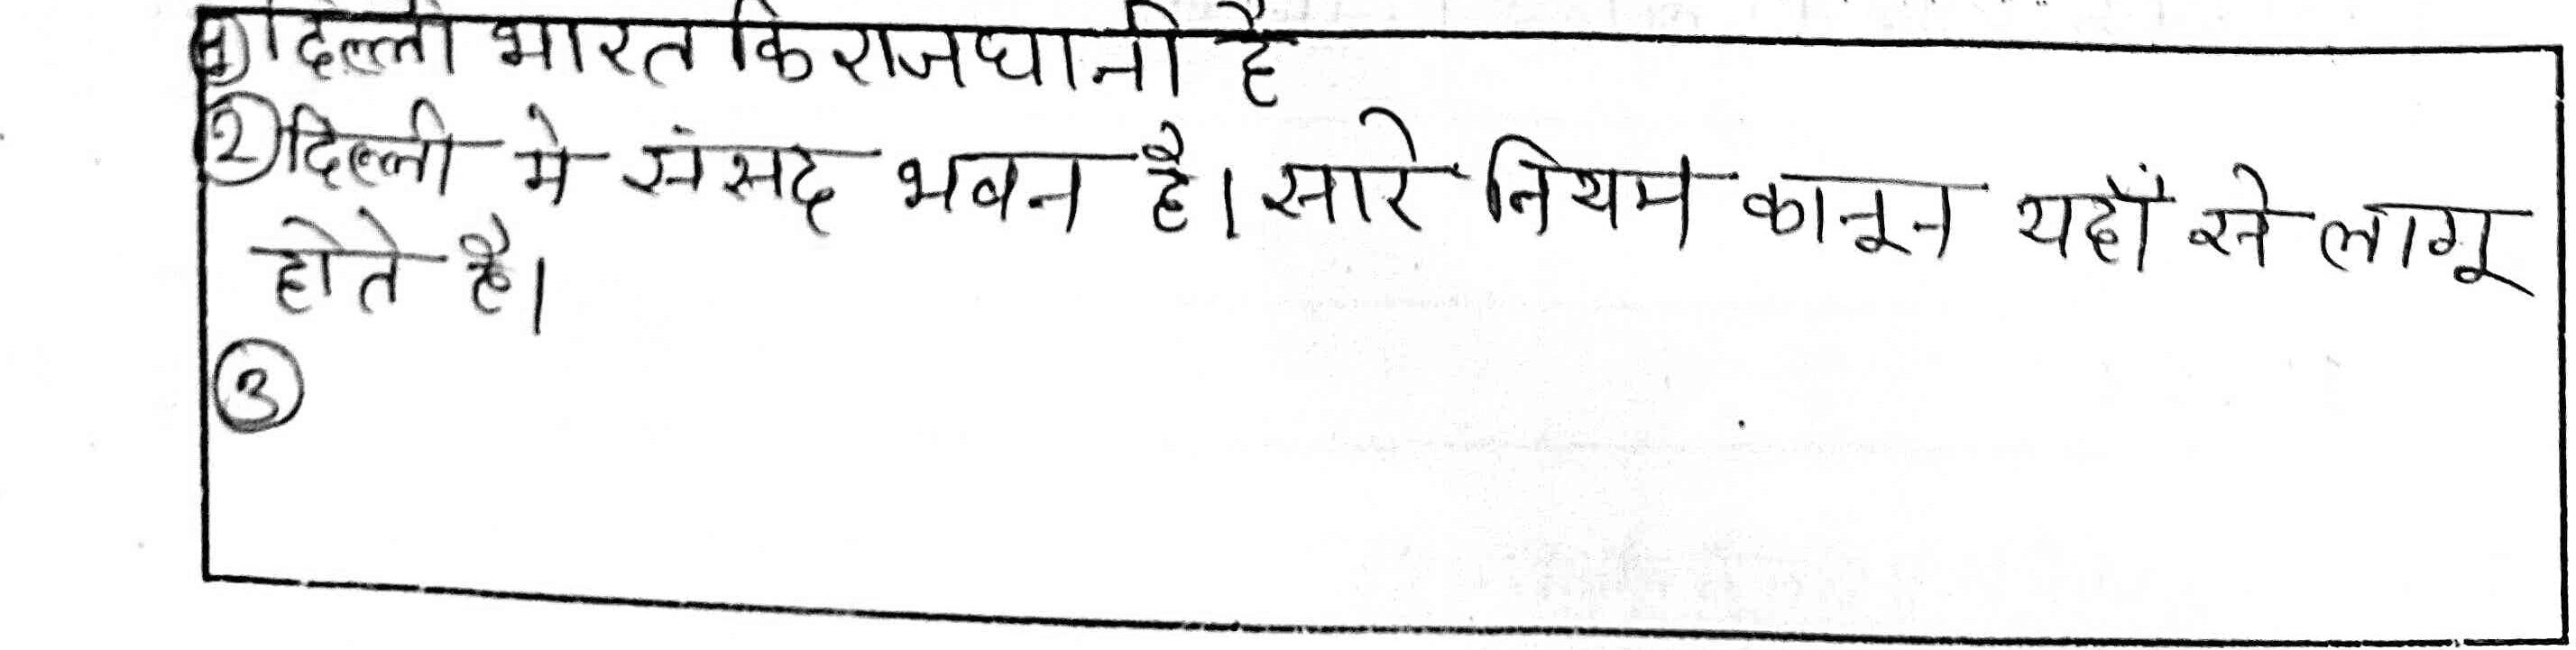 ① दिल्ली भारत कि राजधानी है
② दिल्ली मे संसद भवन है। सारे नियम कानून यहाँ से लागू
होते है।
③